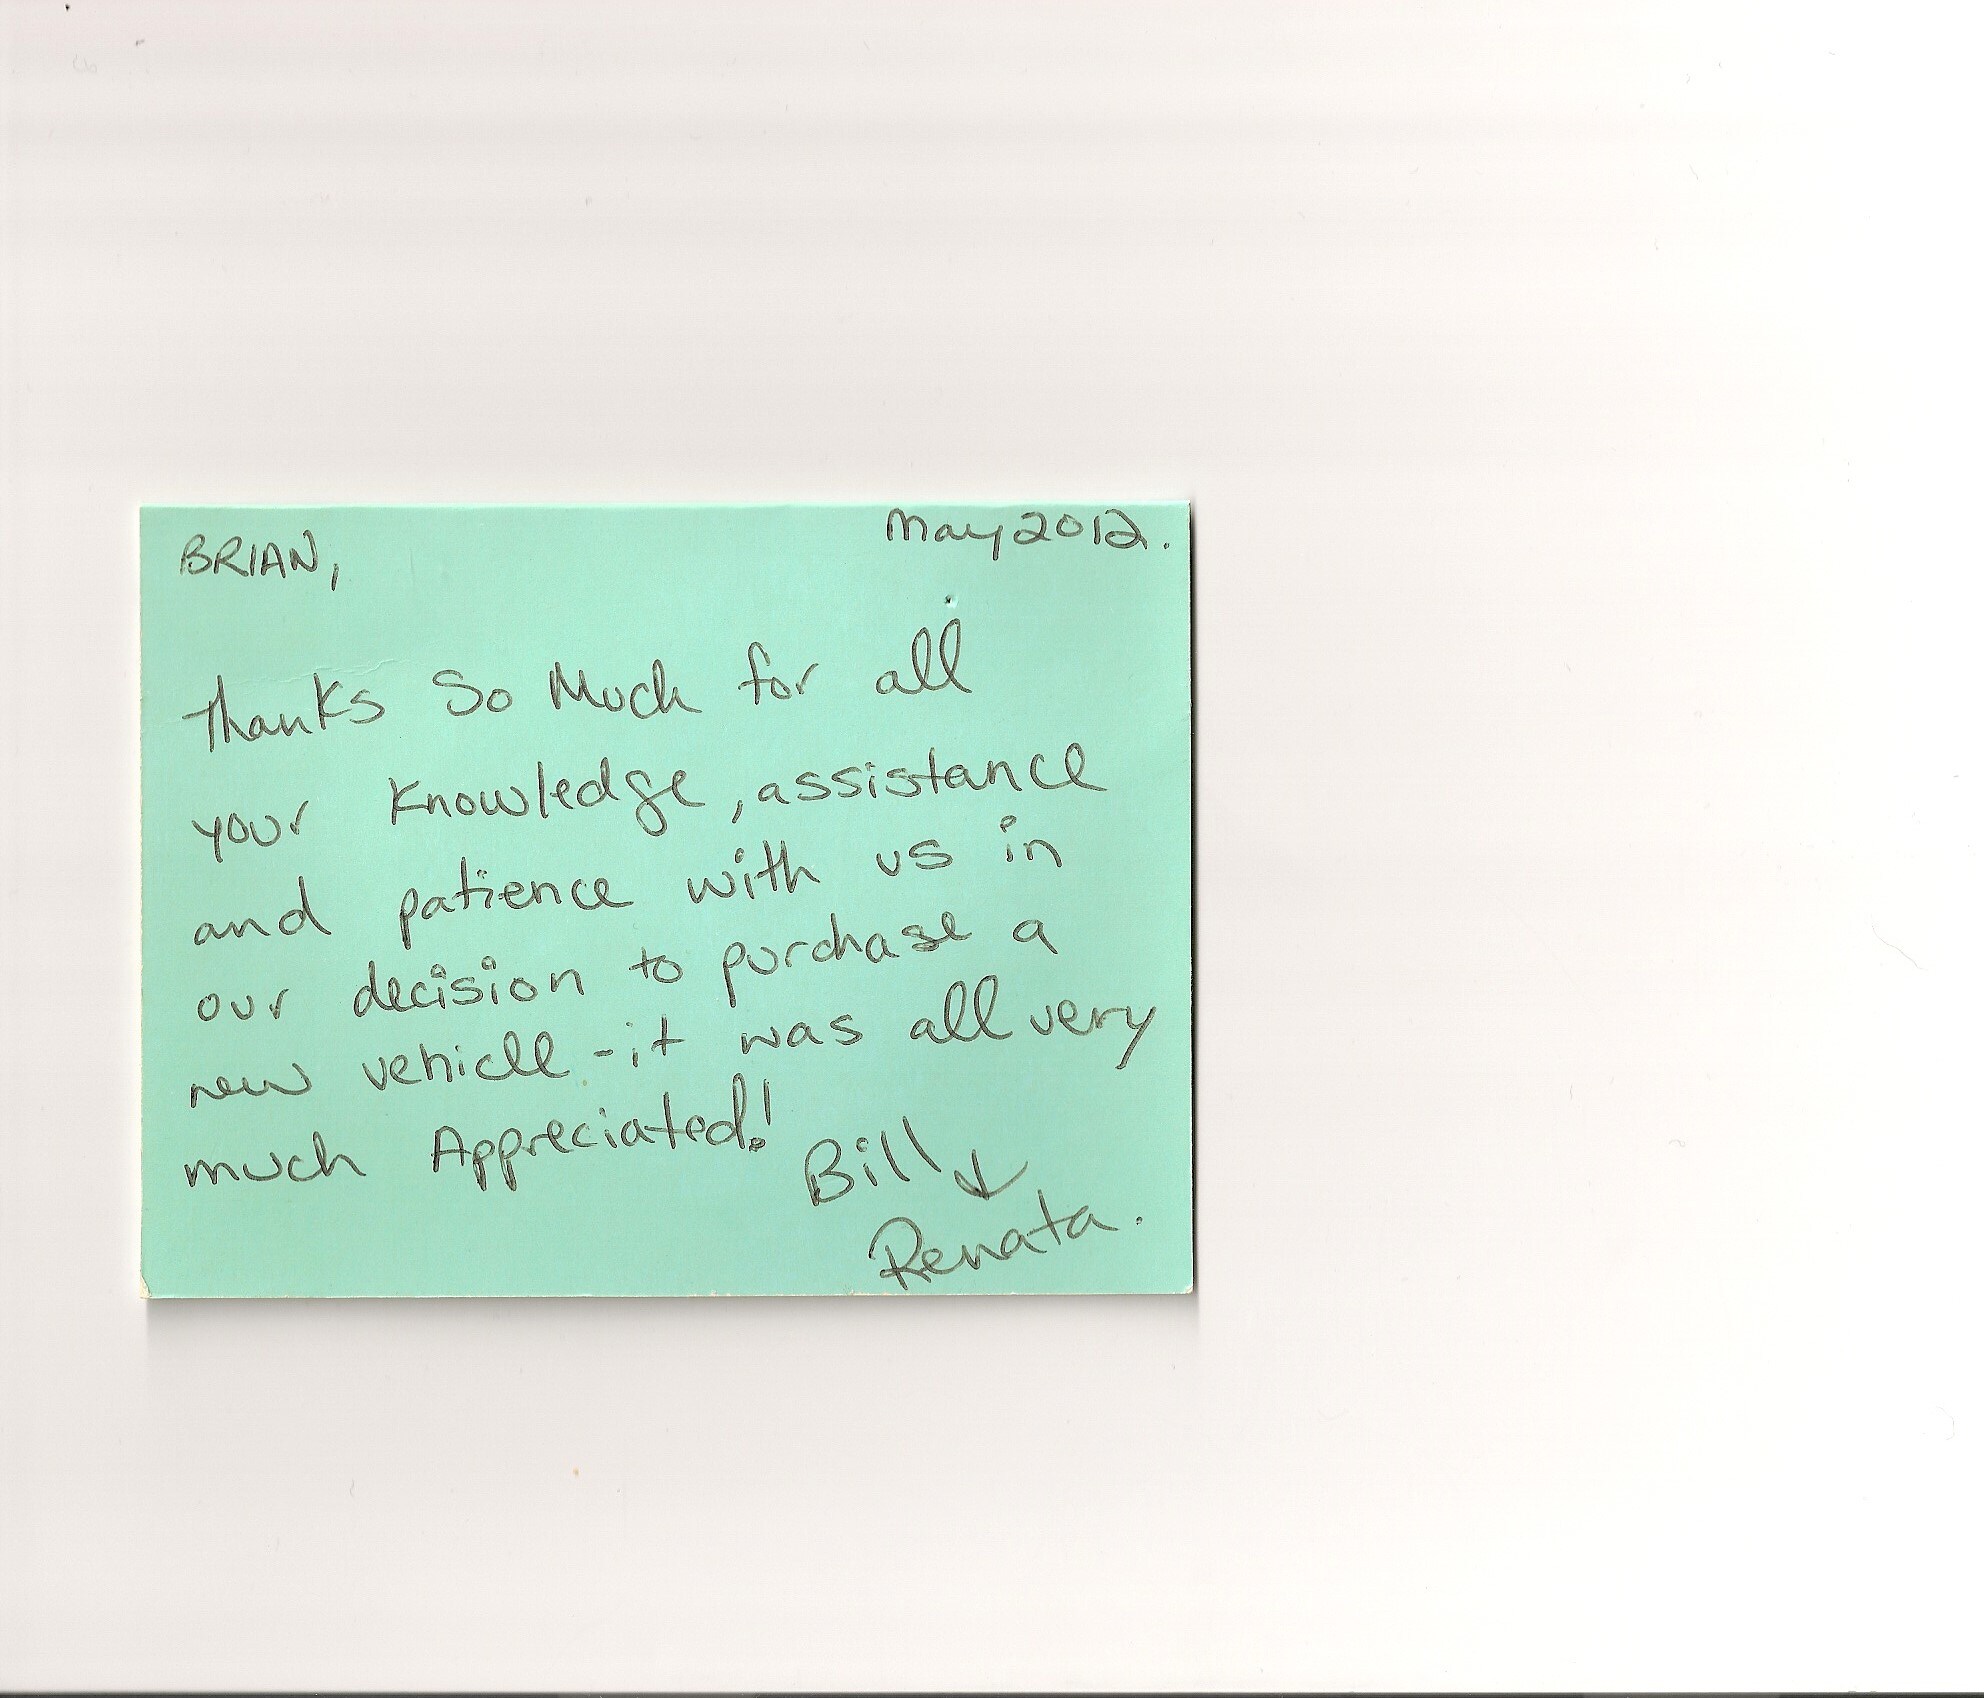 BRIAN,
May 2012.
Thanks So Much for all
your Knowledge, assistance
and patience with us in
our decision to purchase a
new vehicle - it was all very
much Appreciated!
Bill ↓
Renata.